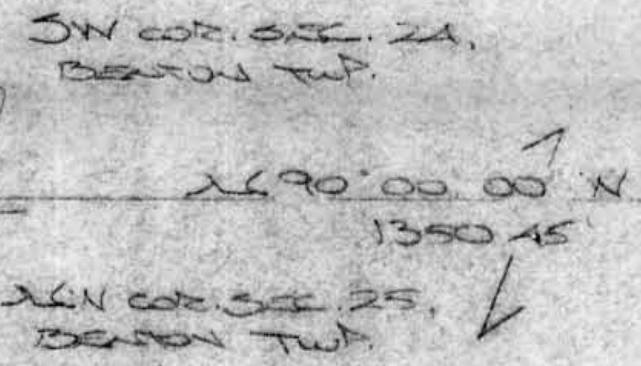 SW COR. SEC. 24,
BENTON TWP.
N 90°00'00" W
1350.45'
NW COR. SEC. 25,
BENTON TWP.